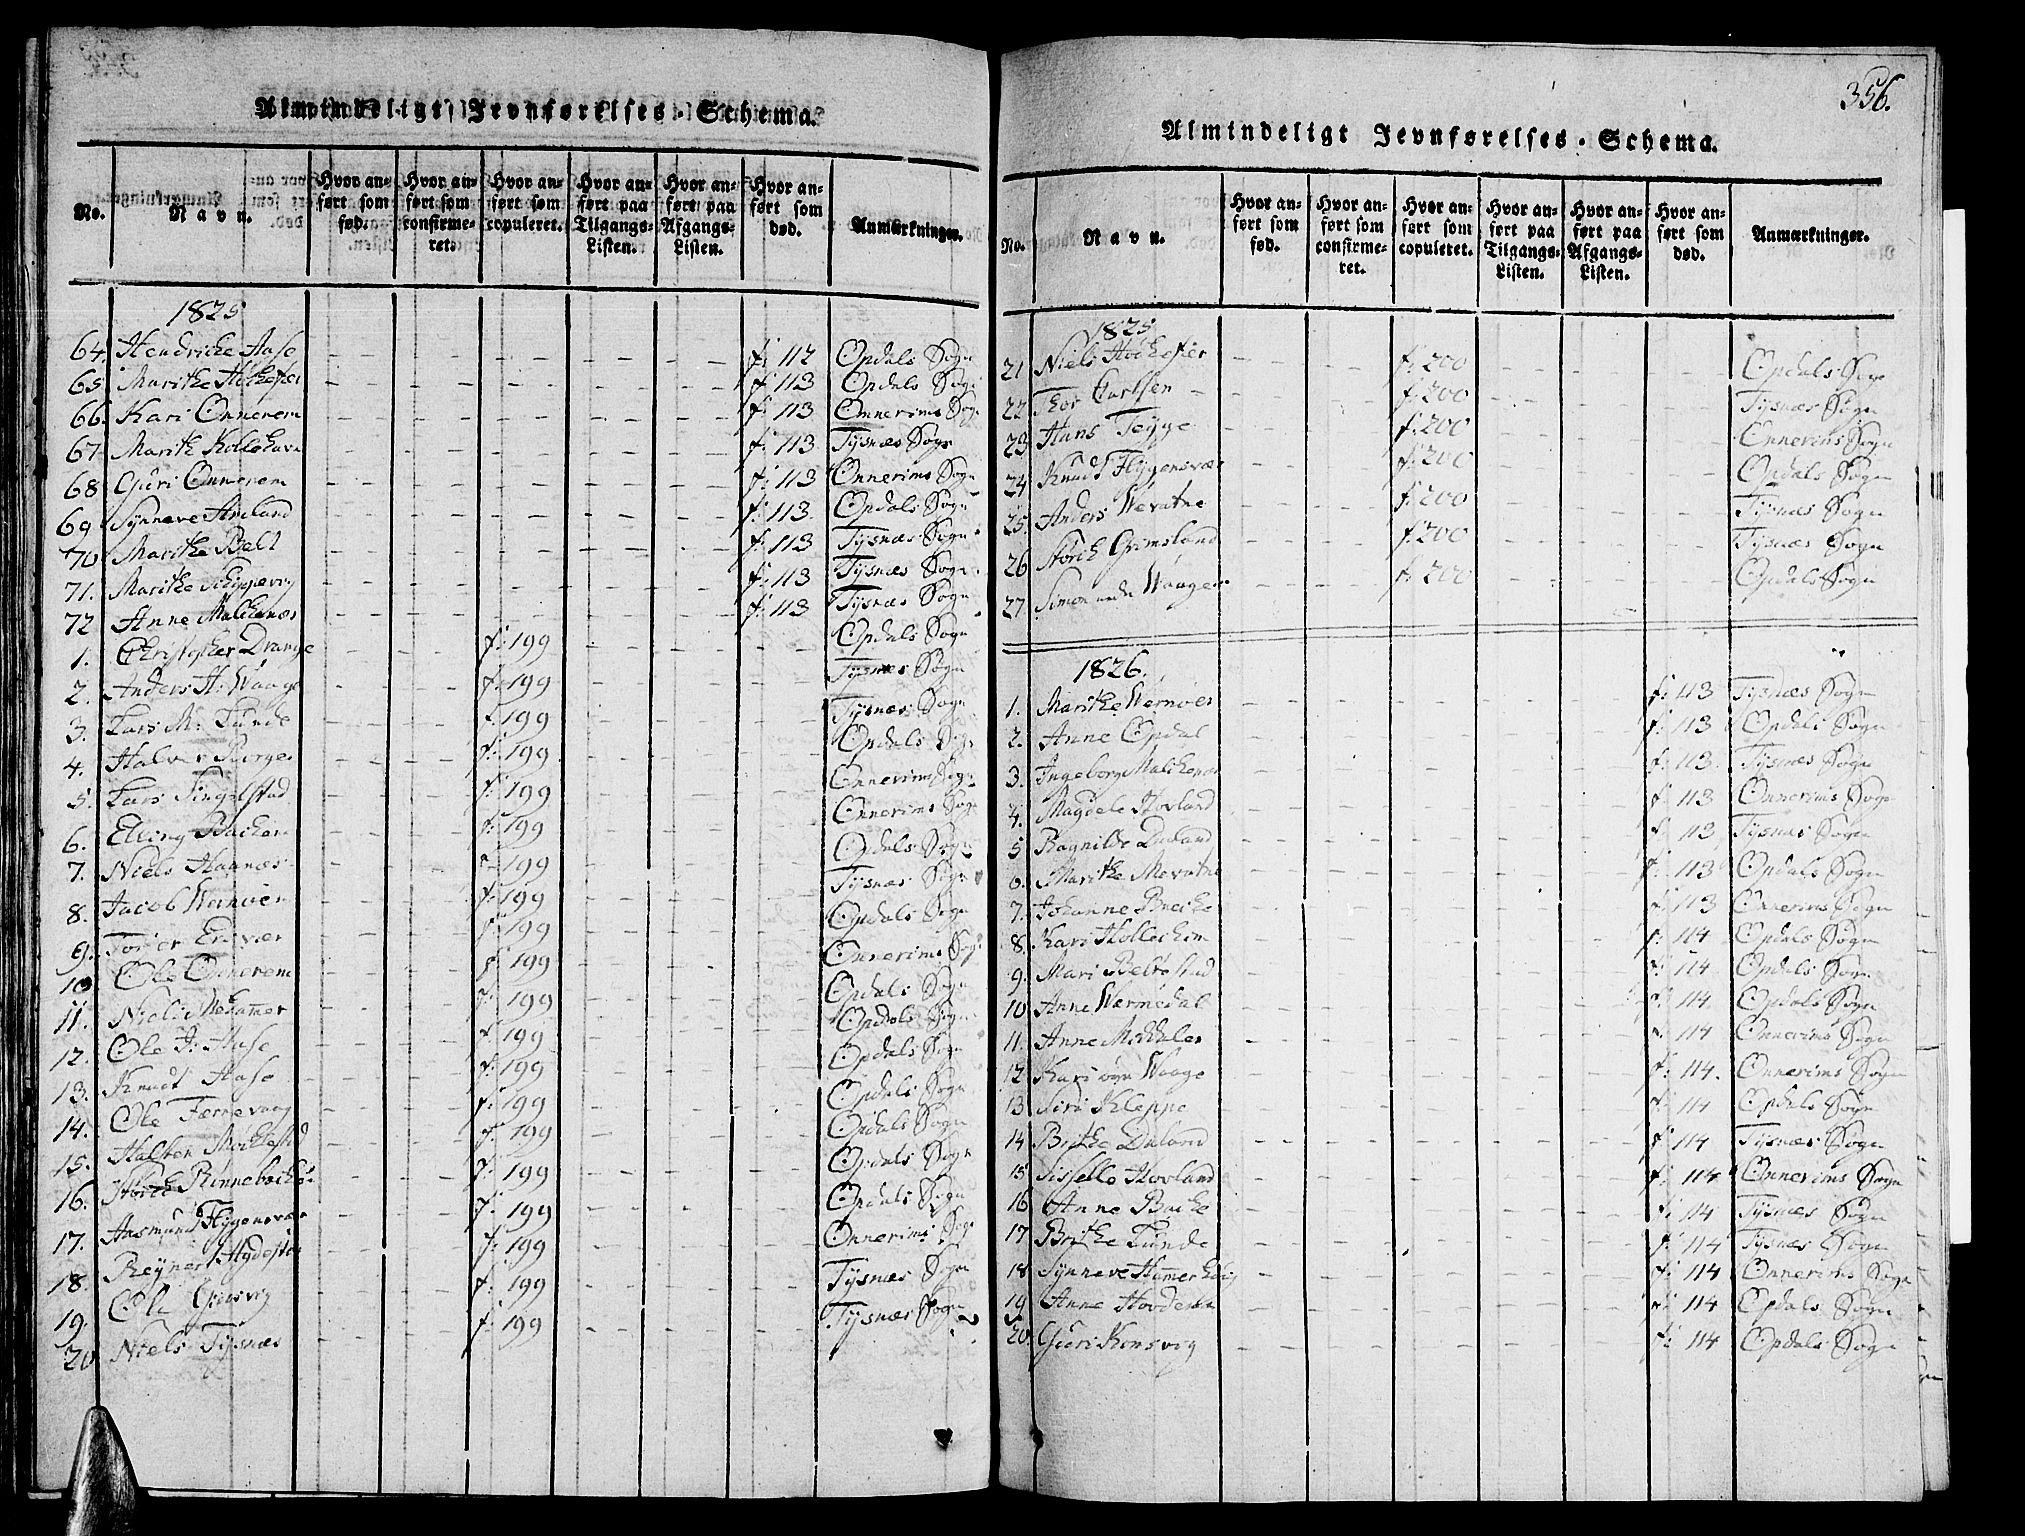 Almindeligt Jevnførelses-Schema.
No. Navn. Hvor anført som fød. Hvor anført som confirmeret. Hvor anført som copuleret. Hvor anført paa Tilgangs-Listen. Hvor anført paa Afgangs-Listen. Hvor anført som død. Anmærkninger.
1825
64. Hendricke Aase f: 112 Opdals Sogn
65. Marithe f: 113 Opdals Sogn
66. Kari Onnerem f: 113 Onnerims Sogn
67. Marith f: 113 Tysnæs Sogn
68. Guri Onnerem f: 113 Onnerims Sogn
69. Synneve f: 113 Opdals Sogn
70. Marithe Belt f: 113 Tysnæs Sogn
71. Marithe f: 113 Tysnæs Sogn
72. Anne Malchenæs f: 113 Tysnæs Sogn
1. Christopher Drange f: 199 Opdals Sogn
2. Anders H: Waage f: 199 Tysnæs Sogn
3. Lars M: Lunde f: 199 Tysnæs Sogn
4. Halvor f: 199 Opdals Sogn
5. Lars Singelstad f: 199 Onnerims Sogn
6. Elling Backen f: 199 Onnerims Sogn
7. Niels Haanæs f: 199 Opdals Sogn
8. Jacob Wernøen f: 199 Tysnæs Sogn
9. f: 199 Opdals Sogn
10. Ole Onnerem f: 199 Onnerims Sogn
11. f: 199 Opdals Sogn
12. Ole J: Aase f: 199 Opdals Sogn
13. Knudt Aase f: 199 Opdals Sogn
14. Ole Færrevaag f: 199 Opdals Sogn
15. Halsten f: 199 Opdals Sogn
16. f: 199 Opdals Sogn
17. Aasmund Flygensvær f: 199 Opdals Sogn
18. f: 199 Onnerims Sogn
19. Ole f: 199 Tysnæs Sogn
20. Niels Tysnæs f: 199 Tysnæs Sogn
356.
Almindeligt Jevnførelses-Schema.
No. Navn. Hvor anført som fød. Hvor anført som confirmeret. Hvor anført som copuleret. Hvor anført paa Tilgangs-Listen. Hvor anført paa Afgangs-Listen. Hvor anført som død. Anmærkninger.
1825
21 Niels f: 200 Opdals Sogn
22 f: 200 Tysnæs Sogn
23 Hans Teyge f: 200 Onnerims Sogn
24 Knudt Flygensvær f: 200 Opdals Sogn
25. Anders Wevatne f: 200 Tysnæs Sogn
26 Størch Grimsland f: 200 Tysnæs Sogn
27. Simon Waage f: 200 Opdals Sogn
1826.
1. Marithe Wernøen f: 113 Tysnæs Sogn
2. Anne Opdal f: 113 Opdals Sogn
3. Ingeborg Malchenæs f: 113. Tysnæs Sogn
4. Magdele Hovland f: 113 Onnerims Sogn
5 Ragnilde f: 113 Tysnæs Sogn
6. Marithe Mevatne f: 113 Opdals Sogn
7. Johanne f: 113 Onnerims Sogn
8. Kari f: 114 Opdals Sogn
9. Mari f: 114 Opdals Sogn
10 Anne f: 114. Opdals Sogn
11. Anne f: 114 Onnerims Sogn
12 Kari Waage f: 114. Onnerims Sogn
13 Siri Kleppe f: 114 Opdals Sogn
14 Brithe f: 114 Tysnæs Sogn
15 Sisselle Hovland f: 114 Onnerims Sogn
16 Anne Backe f: 114 Tysnæs Sogn
17 Brithe Lunde f: 114 Tysnæs Sogn
18 Synneve f: 114 Onnerims Sogn
19 Anne f: 114 Opdals Sogn
20. Guri f: 114 Opdals Sogn